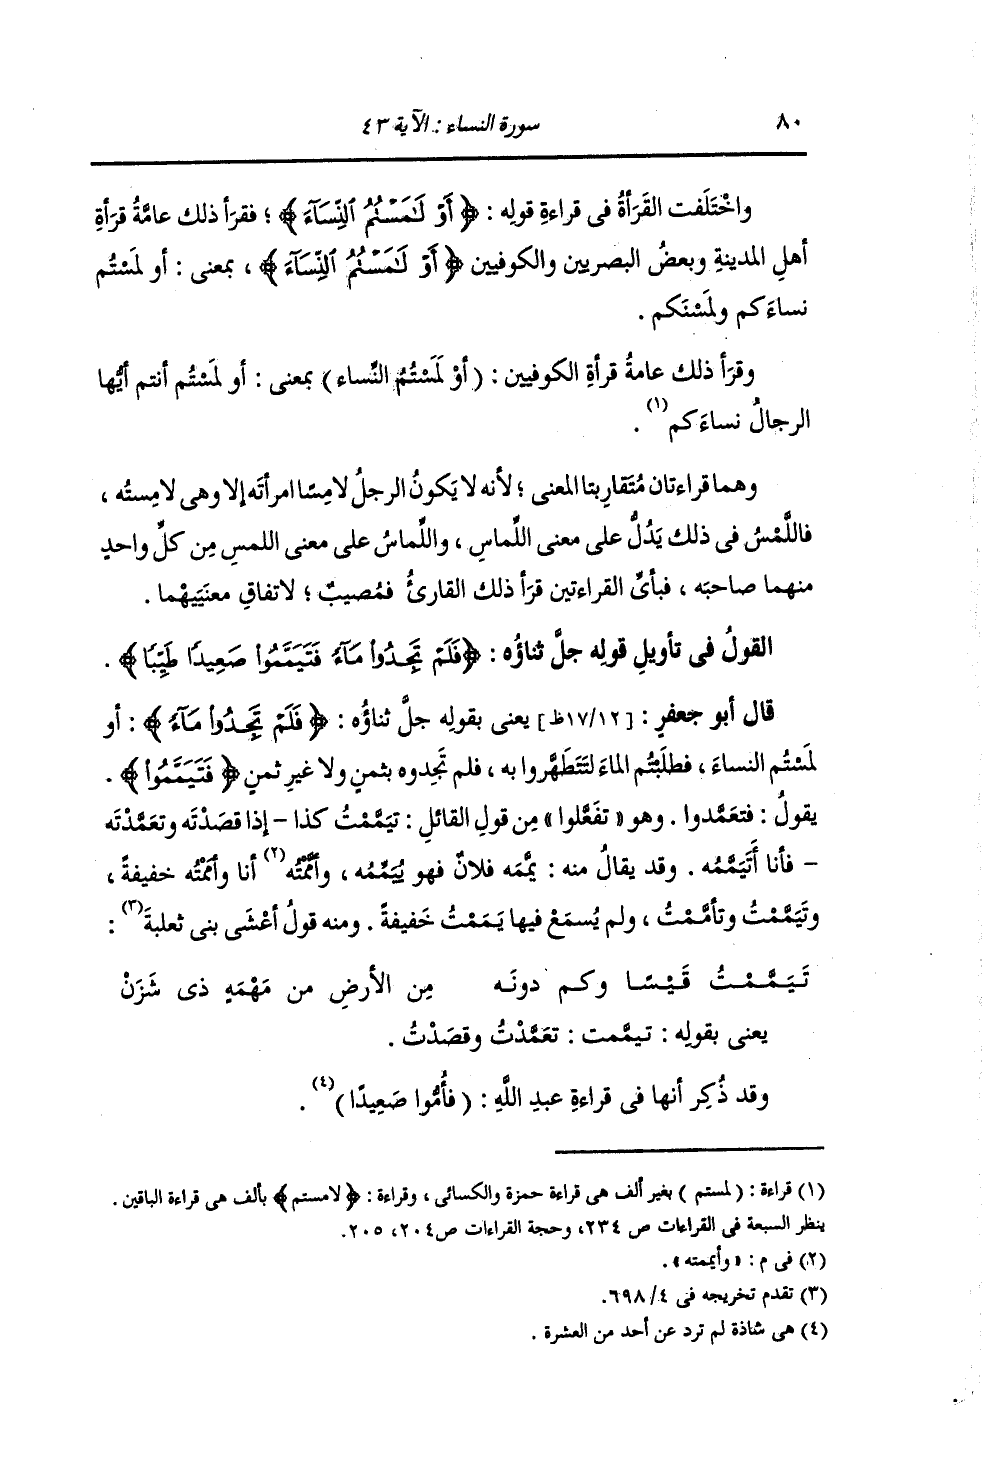 ٨٠ سورة النساء : الآية ٤٣
واخْتَلَفت القَرَأةُ فى قراءةِ قولِه : ﴿ أَوْ لَٰمَسْتُمُ ٱلنِّسَآءَ ﴾ ؛ فقرَأ ذلك عامَّةُ قرَأةِ
أهلِ المدينةِ وبعضُ البصريين والكوفيين ﴿ أَوْ لَٰمَسْتُمُ ٱلنِّسَآءَ ﴾ ، بمعنى : أو لمَسْتُم
نساءَكم ولمَسْنَكم .
وقرَأ ذلك عامةُ قرأةِ الكوفيين : ( أوْ لَمَسْتُمُ النِّساء ) بمعنى : أو لمَسْتُم أنتم أيُّها
الرجالُ نساءَكم(١) .
وهما قراءتان مُتَقارِبتا المعنى ؛ لأنه لا يَكونُ الرجلُ لامِسًا امرأتَه إلا وهى لامِستُه ،
فاللَّمْسُ فى ذلك يَدُلُّ على معنى اللِّماسِ ، واللِّماسُ على معنى اللمسِ مِن كلِّ واحدٍ
منهما صاحبَه ، فبأىِّ القراءتين قرَأ ذلك القارئُ فمُصيبٌ ؛ لاتفاقِ معنَيَيْهما .
القولُ فى تأويلِ قولِه جلَّ ثناؤُه : ﴿ فَلَمْ تَجِدُوا۟ مَآءً فَتَيَمَّمُوا۟ صَعِيدًا طَيِّبًا ﴾ .
قال أبو جعفرٍ : [١٧/١٢ظ] يعنى بقولِه جلَّ ثناؤُه : ﴿ فَلَمْ تَجِدُوا۟ مَآءً ﴾ : أو
لمَسْتُم النساءَ ، فطلَبْتُم الماءَ لتَتَطَهَّروا به ، فلم تَجِدوه بثمنٍ ولا غيرِ ثمنٍ ﴿ فَتَيَمَّمُوا۟ ﴾ .
يقولُ : فتعَمَّدوا . وهو « تفَعَّلوا » مِن قولِ القائلِ : تيَمَّمْتُ كذا - إذا قصَدْتَه وتعَمَّدْتَه
- فأنا أَتَيَمَّمُه . وقد يقالُ منه : يمَّمَه فلانٌ فهو يُيَمِّمُه ، وأمَّمْتُه(٢) أنا وأمَمْتُه خفيفةً ،
وتَيَمَّمْتُ وتأمَّمْتُ ، ولم يُسمَعْ فيها يَمَمْتُ خَفيفةً . ومنه قولُ أعْشَى بنى ثعلبةَ(٣) :
تَيَمَّمْتُ قَيْسًا وكم دونَه مِن الأرضِ من مَهْمَهٍ ذى شَزَنْ
يعنى بقولِه : تيمَّمت : تعَمَّدْتُ وقصَدْتُ .
وقد ذُكِر أنها فى قراءةِ عبدِ اللَّهِ : ( فأُمُّوا صَعِيدًا )(٤) .
(١) قراءة : ( لمستم ) بغير ألف هى قراءة حمزة والكسائى ، وقراءة : ﴿ لامستم ﴾ بألف هى قراءة الباقين .
ينظر السبعة فى القراءات ص ٢٣٤، وحجة القراءات ص٢٠٤، ٢٠٥.
(٢) فى م : « وأيممته » .
(٣) تقدم تخريجه فى ٤/ ٦٩٨.
(٤) هى شاذة لم ترد عن أحد من العشرة .